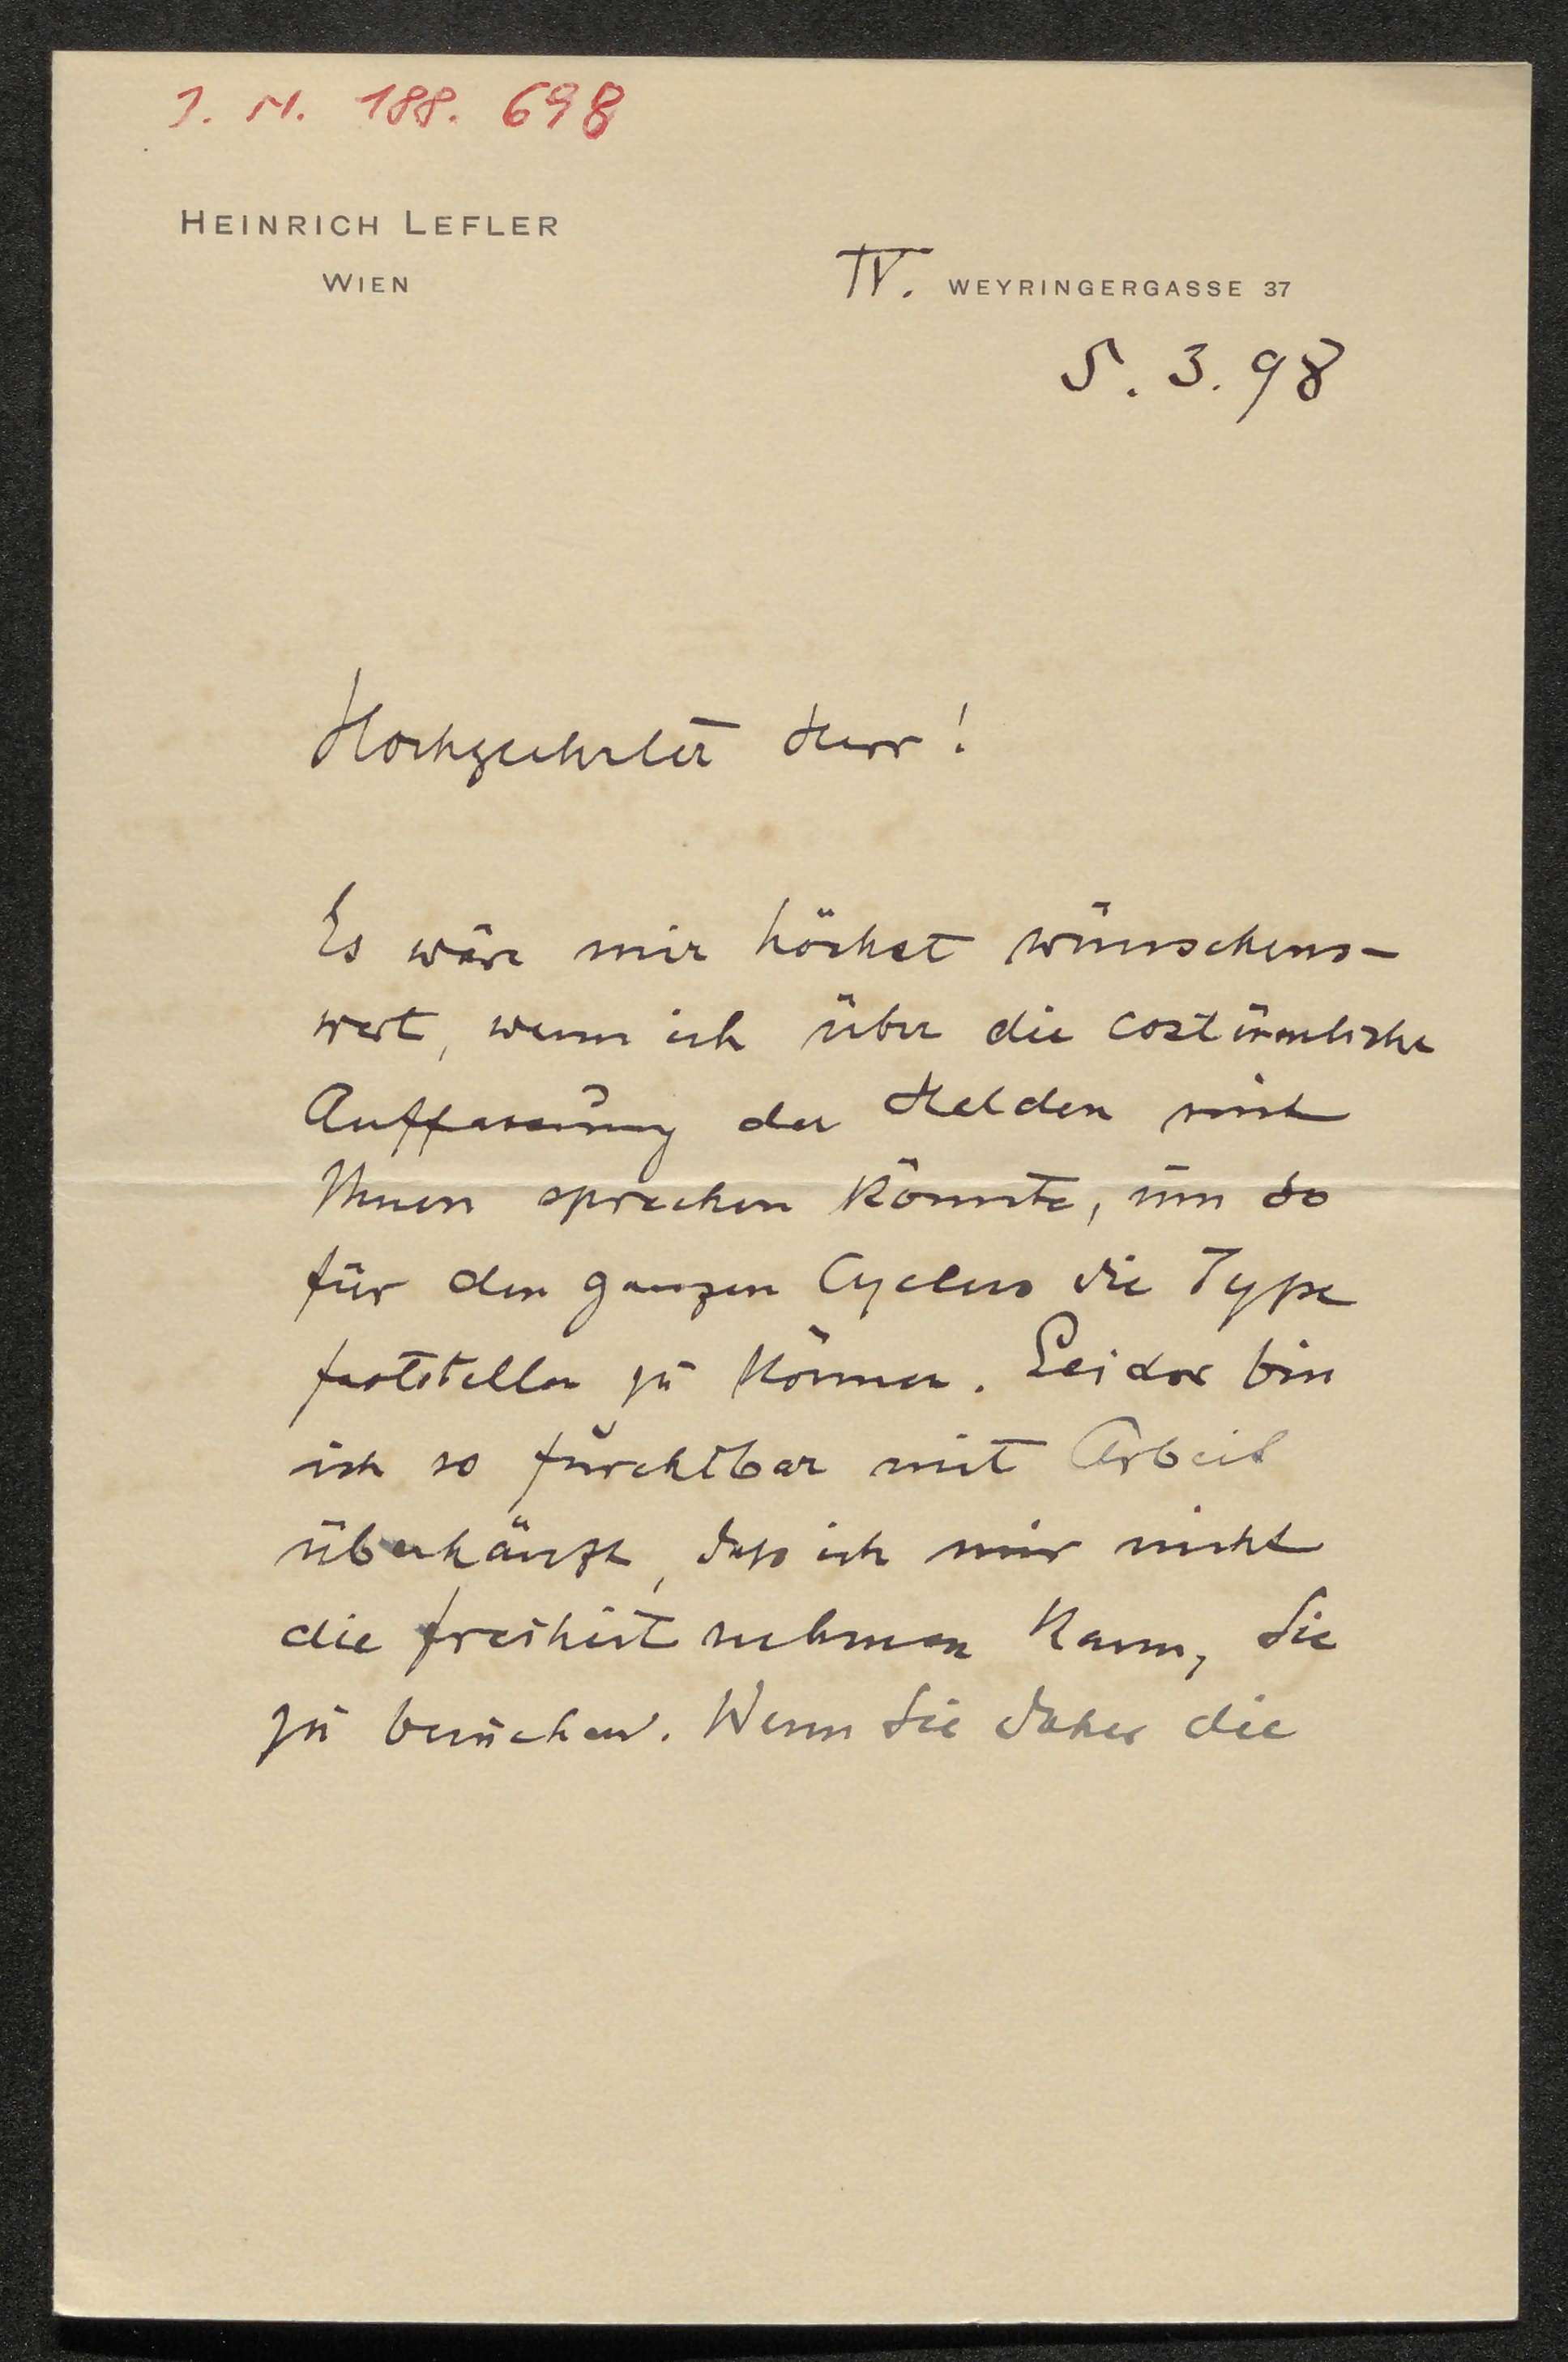 J. N. 188. 698
HEINRICH LEFLER
WIEN
IV. WEYRINGERGASSE 37
5. 3. 98
Hochgeehrter Herr!
Es wäre mir höchst wünschens-
wert, wenn ich über die costümliche
Auffassung der Helden mit
Ihnen sprechen könnte, um so
für den ganzen Cyclus die Type
feststellen zu können. Leider bin
ich so furchtbar mit Arbeit
überhäuft, dass ich mir nicht
die Freiheit nehmen kann, Sie
zu besuchen. Wenn Sie daher die